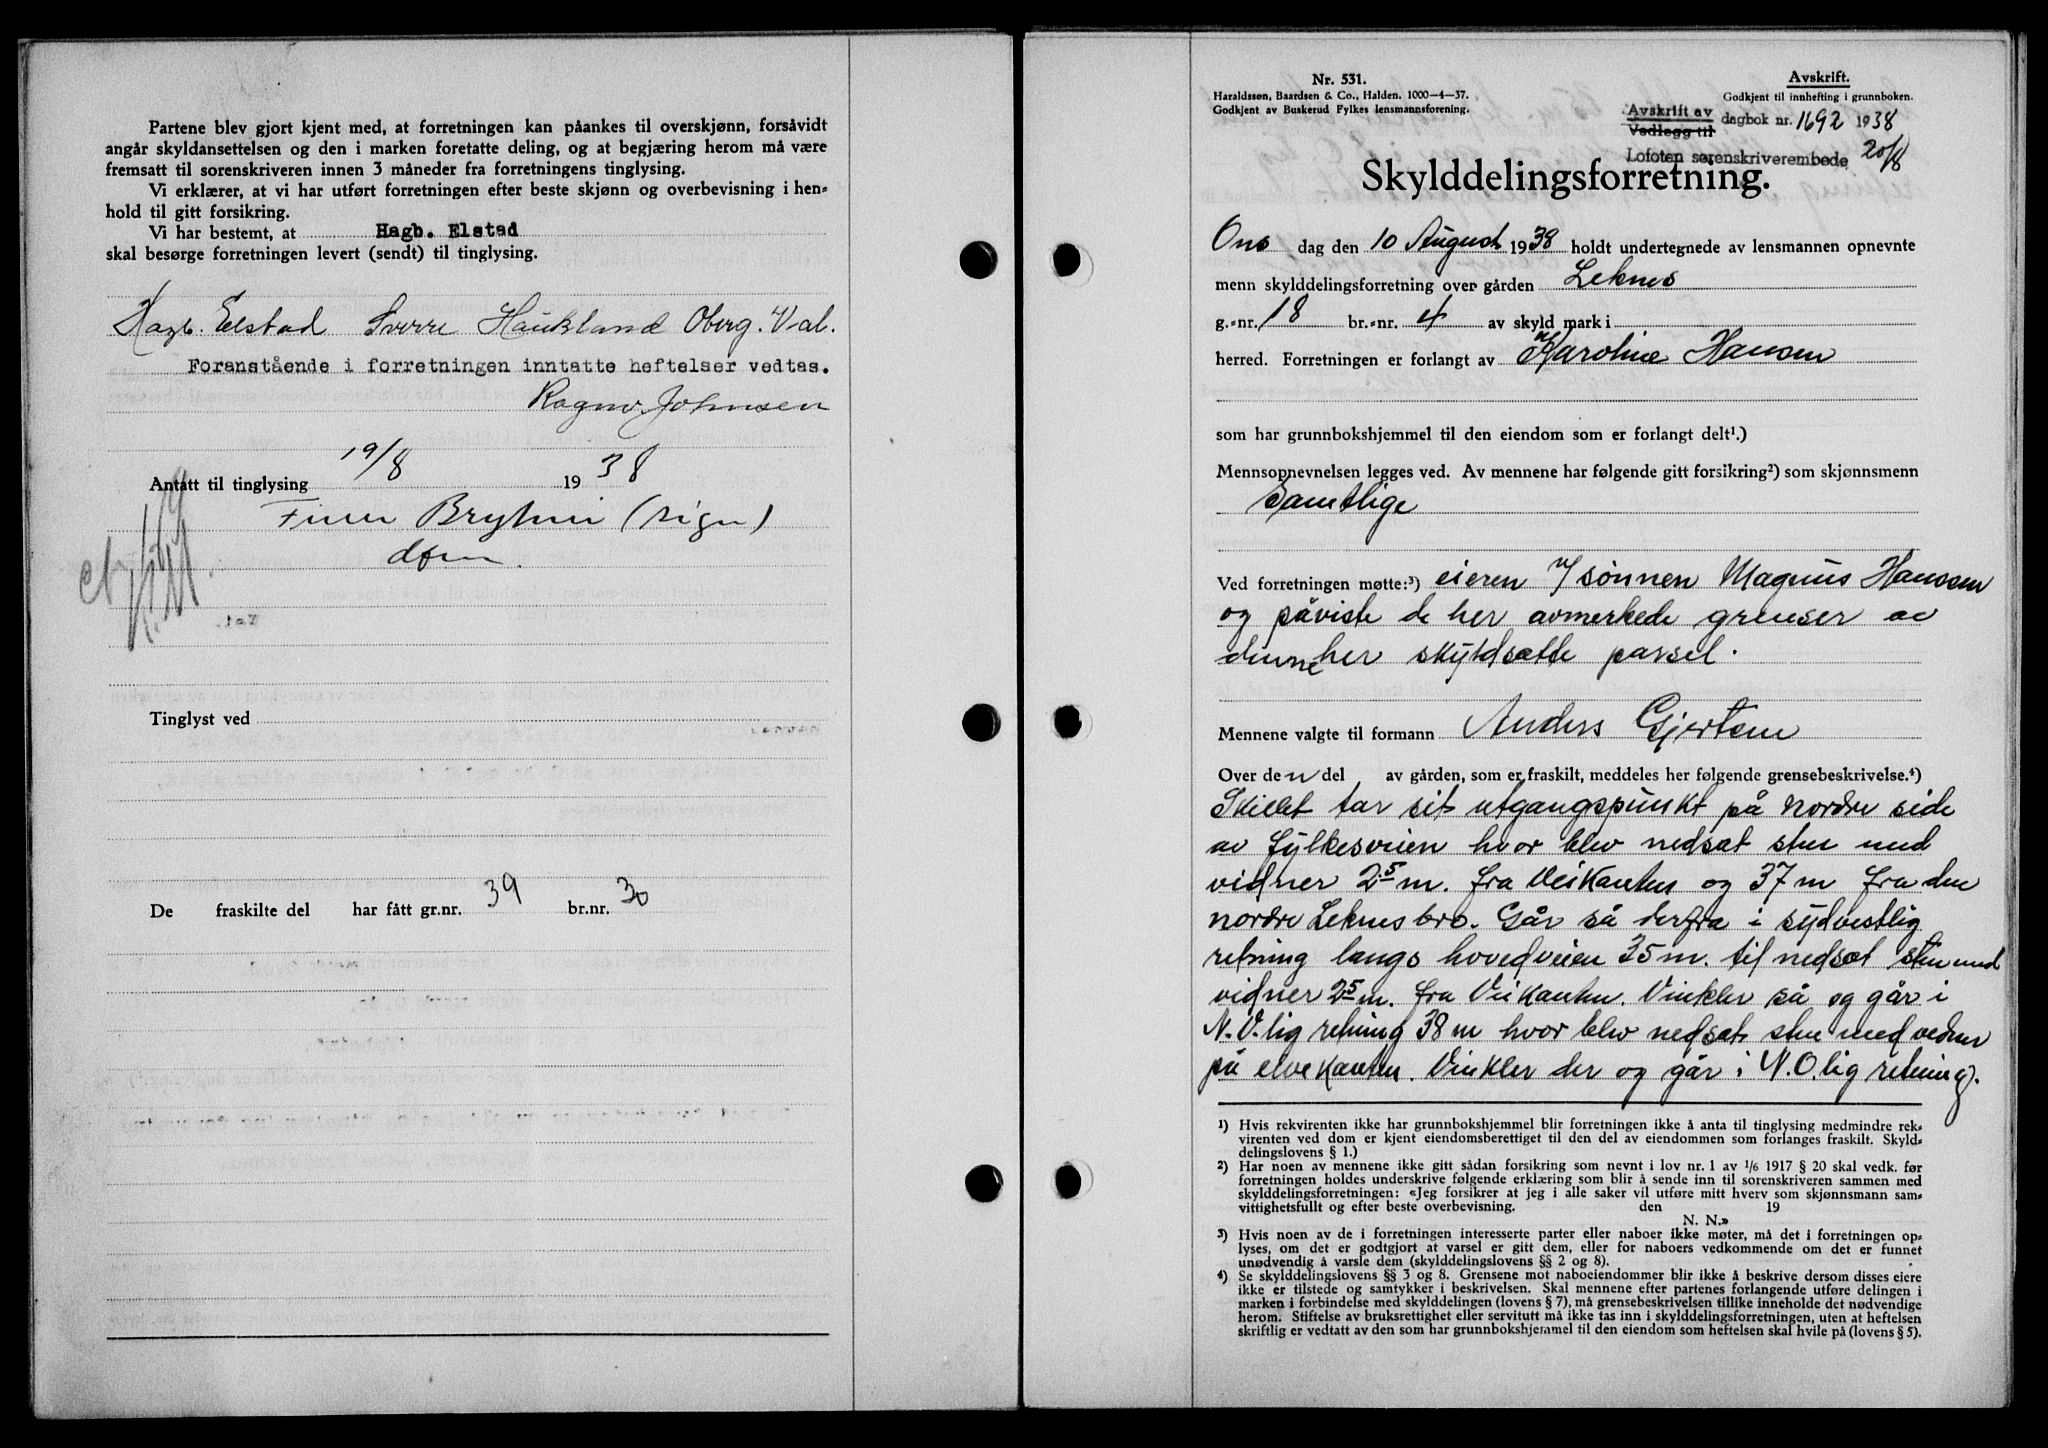 Partene blev gjort kjent med, at forretningen kan påankes til overskjønn, forsåvidt
angår skyldansettelsen og den i marken foretatte deling, og at begjæring herom må være
fremsatt til sorenskriveren innen 3 måneder fra forretningens tinglysing.
Vi erklærer, at vi har utført forretningen efter beste skjønn og overbevisning i hen=
hold til gitt forsikring.
Vi har bestemt, at Hagb. Elstad
skal besørge forretningen levert (sendt) til tinglysing.
Hagb. Elstad Sverre Haukland Oberg. Val.
Foranstående i forretningen inntatte heftelser vedtas.
Ragnv. Johnsen
Antatt til tinglysing 19/8 1938
Finn Bryhni (sign)
dfm.
Tinglyst ved
De fraskilte del har fått gr.nr. 39 br.nr. 30
Nr. 531.
Haraldssøn, Baardsen & Co., Halden. 1000—4—37.
Godkjent av Buskerud Fylkes lensmannsforening.
Avskrift.
Godkjent til innhefting i grunnboken.
Avskrift av
Vedlegg til
dagbok nr. 1692 1938
Lofoten sorenskriverembede 20/8
Skylddelingsforretning.
Ons dag den 10 August 1938 holdt undertegnede av lensmannen opnevnte
menn skylddelingsforretning over gården Leknes
g.=nr. 18 br.=nr. 4 av skyld mark i
herred. Forretningen er forlangt av Karoline Hansen
som har grunnbokshjemmel til den eiendom som er forlangt delt¹.)
Mennsopnevnelsen legges ved. Av mennene har følgende gitt forsikring²) som skjønnsmenn
Samtlige
Ved forretningen møtte:³) eieren v/ sønnen Magnus Hanssen
og påviste de her avmerkede grenser av
denne her skyldsatte parsel.
Mennene valgte til formann Anders Gjertsen
Over den del av gården, som er fraskilt, meddeles her følgende grensebeskrivelse.⁴)
Skillet tar sit utgangspunkt på nordre side
av fylkesveien hvor blev nedsat sten med
vidner 2⁵ m. fra Veikanten og 37 m fra den
nordre Leknes bro. Går så derfra i sydvestlig
retning langs hovedveien 35 m. til nedsat sten med
vidner 2⁵ m. fra Veikanten. Vinkler så og går i
N.V.lig retning 38 m hvor blev nedsat sten med vidner
på elvekanten. Vinkler der og går i N.O.lig retning).
¹) Hvis rekvirenten ikke har grunnbokshjemmel blir forretningen ikke å anta til tinglysing medmindre rek=
virenten ved dom er kjent eiendomsberettiget til den del av eiendommen som forlanges fraskilt. Skyld=
delingslovens § 1.)
²) Har noen av mennene ikke gitt sådan forsikring som nevnt i lov nr. 1 av 1/6 1917 § 20 skal vedk. før
forretningen holdes underskrive følgende erklæring som blir å sende inn til sorenskriveren sammen med
skylddelingsforretningen: «Jeg forsikrer at jeg i alle saker vil utføre mitt hverv som skjønnsmann sam=
vittighetsfullt og efter beste overbevisning. den 19
N. N.»
³) Hvis noen av de i forretningen interesserte parter eller naboer ikke møter, må det i forretningen op=
lyses, om det er godtgjort at varsel er gitt dem, eller for naboers vedkommende om det er funnet
unødvendig å varsle dem (skylddelingslovens §§ 2 og 8).
⁴) Se skylddelingslovens §§ 3 og 8. Grensene mot naboeiendommer blir ikke å beskrive dersom disses eiere
ikke er tilstede og samtykker i beskrivelsen. Skal mennene efter partenes forlangende utføre delingen i
marken i forbindelse med skylddelingen (lovens § 7), må grensebeskrivelsen tillike inneholde det nødvendige
herom. Stiftelse av bruksrettighet eller servitutt må ikke tas inn i skylddelingsforretningen, uten at heftelsen
skriftlig er vedtatt av den som har grunnbokshjemmel til den eiendom som heftelsen skal hvile på (lovens § 5).